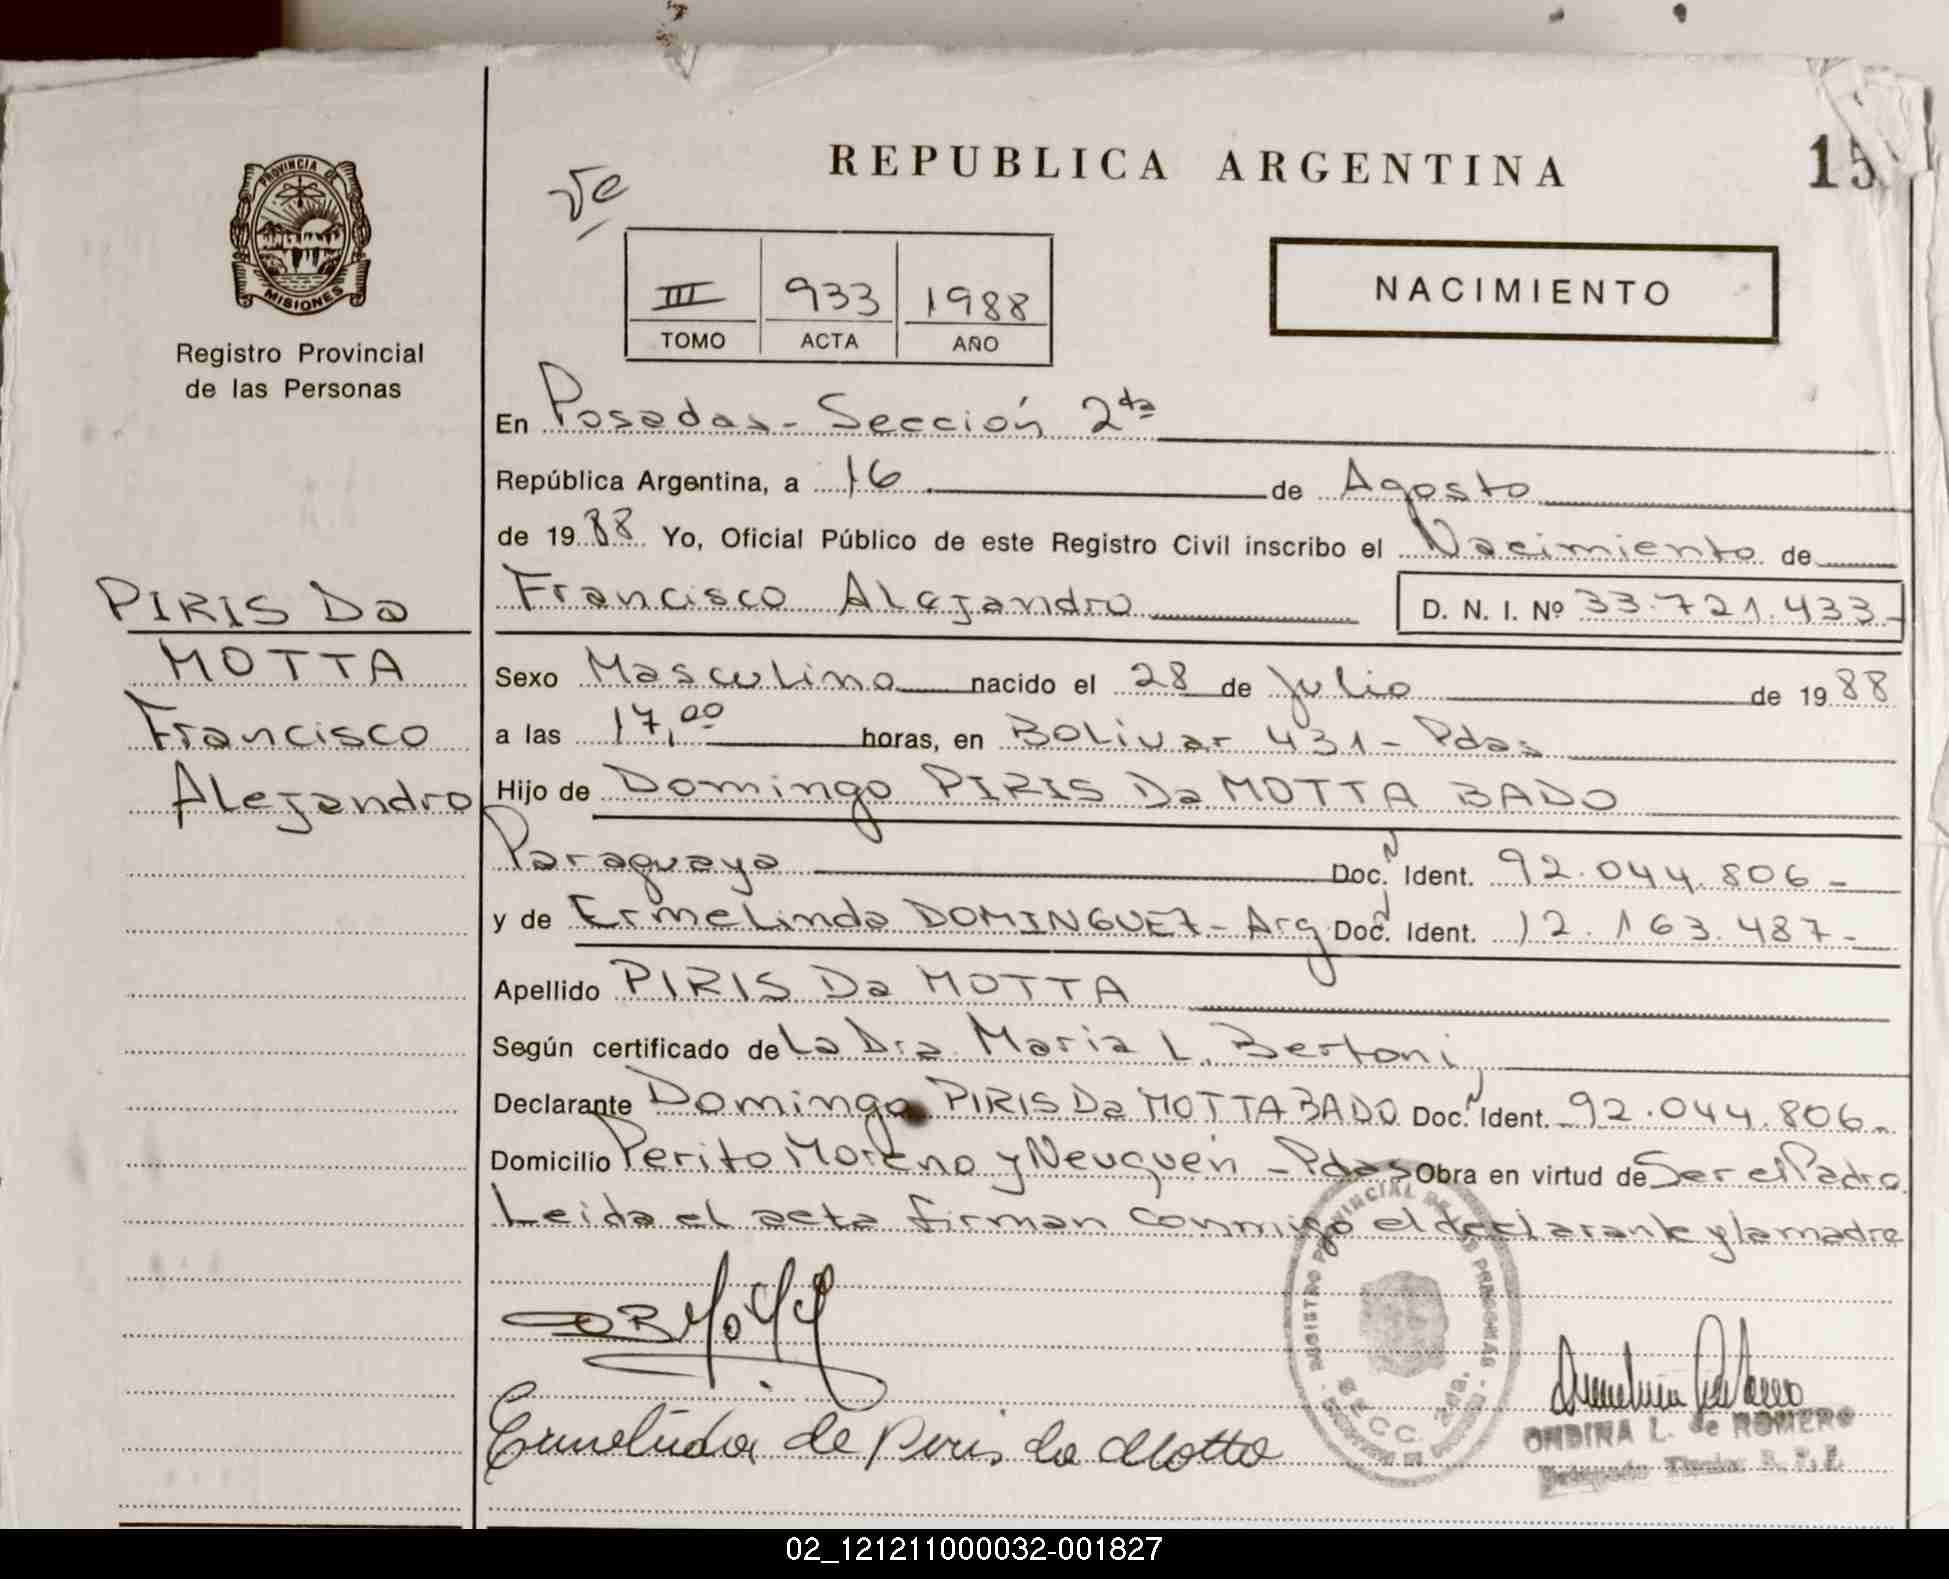 REPUBLICA ARGENTINA
15
PROVINCIA DE
MISIONES
Registro Provincial
de las Personas
III 933 1988
TOMO ACTA AÑO
NACIMIENTO
En Posadas - Sección 2da
República Argentina, a 16 de Agosto
de 1988 Yo, Oficial Público de este Registro Civil inscribo el Nacimiento de
Francisco Alejandro D. N. I. Nº 33.721.433-
PIRIS Da
MOTTA
Francisco
Alejandro
Sexo Masculino nacido el 28 de Julio de 1988
a las 17,00 horas, en Bolivar 431 - Pdas
Hijo de Domingo PIRIS Da MOTTA BADO
Paraguaya Doc. N Ident. 92.044.806-
y de Ermelinda DOMINGUEZ - Arg Doc. Ident. 12.163.487-
Apellido PIRIS Da MOTTA
Según certificado de La Dra. Maria L. Bertoni
Declarante Domingo PIRIS Da MOTTA BADO Doc. N Ident. 92.044.806-
Domicilio Perito Moreno y Neuquén - Pdas Obra en virtud de Ser el Padre
Leida el acta firman conmigo el declarante y la madre
REGISTRO PROVINCIAL DE LAS PERSONAS
SECC. 2da.
Ermelinda de Piris da Motta
ONDINA L. de ROMERO
02_121211000032-001827